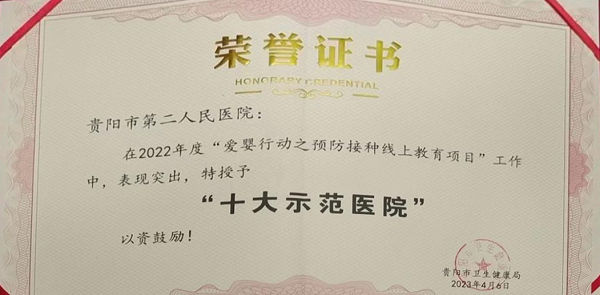 荣誉证书
HONORARY CREDENTIAL
贵阳市第二人民医院：
在2022年度“爱婴行动之预防接种线上教育项目”工作
中，表现突出，特授予
“十大示范医院”
以资鼓励！
贵阳市卫生健康局
2023年4月6日